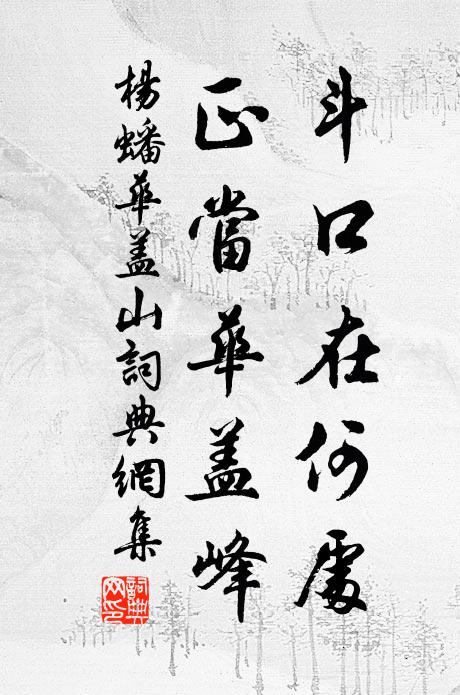 斗口在何處
正當華蓋峰
楊蟠華蓋山詞典網集
詞典網印